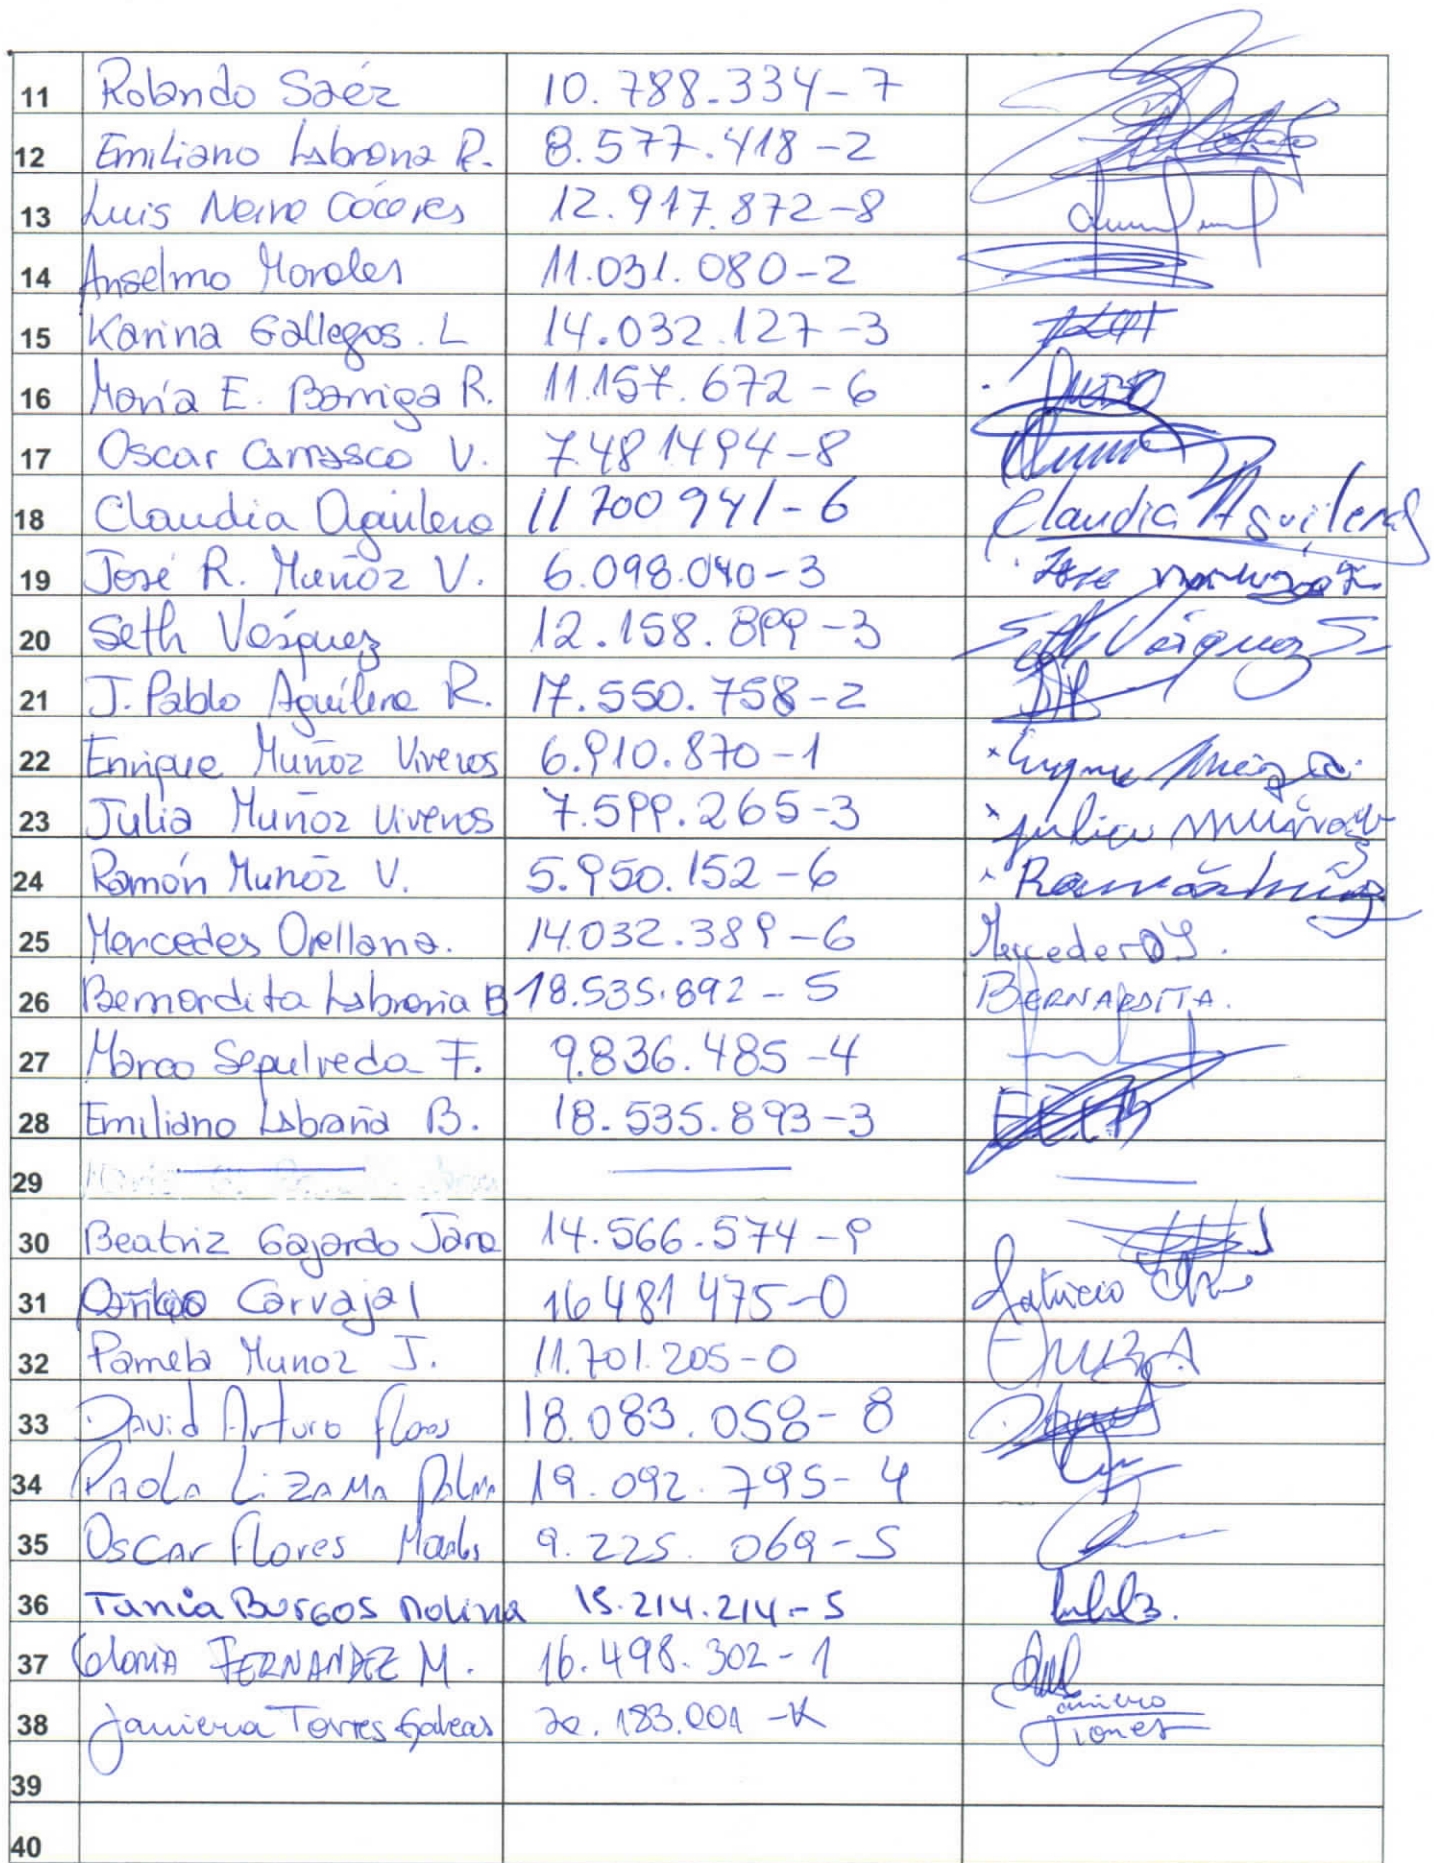 11 Rolando Saéz 10.788.334-7
12 Emiliano Labrana R. 8.577.418-2
13 Luis Neira Cáceres 12.917.872-8
14 Anselmo Morales 11.031.080-2
15 Karina Gallegos. L 14.032.127-3
16 María E. Barriga R. 11.157.672-6
17 Oscar Carrasco V. 7.481494-8
18 Claudia Aguilera 11700941-6 Claudia Aguilera
19 José R. Muñoz V. 6.098.040-3 Jose
20 Seth Vásquez 12.158.899-3 Seth Vásquez S
21 J. Pablo Aguilera R. 17.550.758-2
22 Enrique Muñoz Viveros 6.910.870-1
23 Julia Muñoz Viveros 7.599.265-3 Julia Muñoz
24 Ramón Muñoz V. 5.950.152-6 Ramón Muñoz
25 Mercedes Orellana. 14.032.389-6 Mercedes
26 Bernardita Labraña B 18.535.892-5 BERNARDITA.
27 Marco Sepulveda F. 9.836.485-4
28 Emiliano Labraña B. 18.535.893-3
29
30 Beatriz Gajardo Jara 14.566.574-9
31 Carvajal 16481475-0 Patricio
32 Pamela Munoz J. 11.701.205-0
33 David Arturo flores 18.083.058-8
34 PAOLA LiZAMA PALMA 19.092.795-4
35 OSCAR flores 9.225.069-5
36 Tania BURGOS MOLINA 15.214.214-5
37 GloRIA FERNANDEZ M. 16.498.302-1
38 Javiera Torres 20.183.001-K Javiera
Torres
39
40